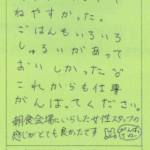 ねやすかった。
ごはんもいろいろ
しゅるいがあって
おいしかった
これからも仕事
がんばってください。
朝食会場にいらした女性スタッフの
感じがとても良かったです